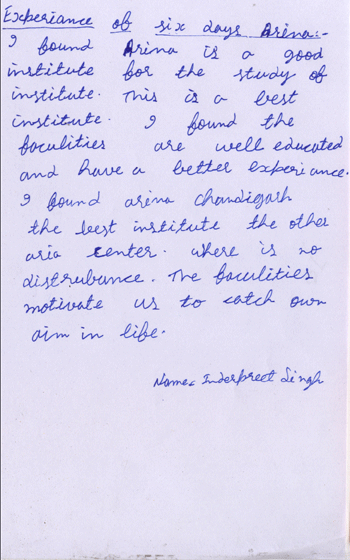 Experiance of six days Arena:-
I found Arena is a good
institute for the study of
institute. This is a best
institute. I found the
faculities are well educated
and have a better experiance.
I found arena chandigarh
the best institute the other
aria center. where is no
distrubance. The faculities
motivate us to catch own
aim in life.
Name: Inderpreet Singh